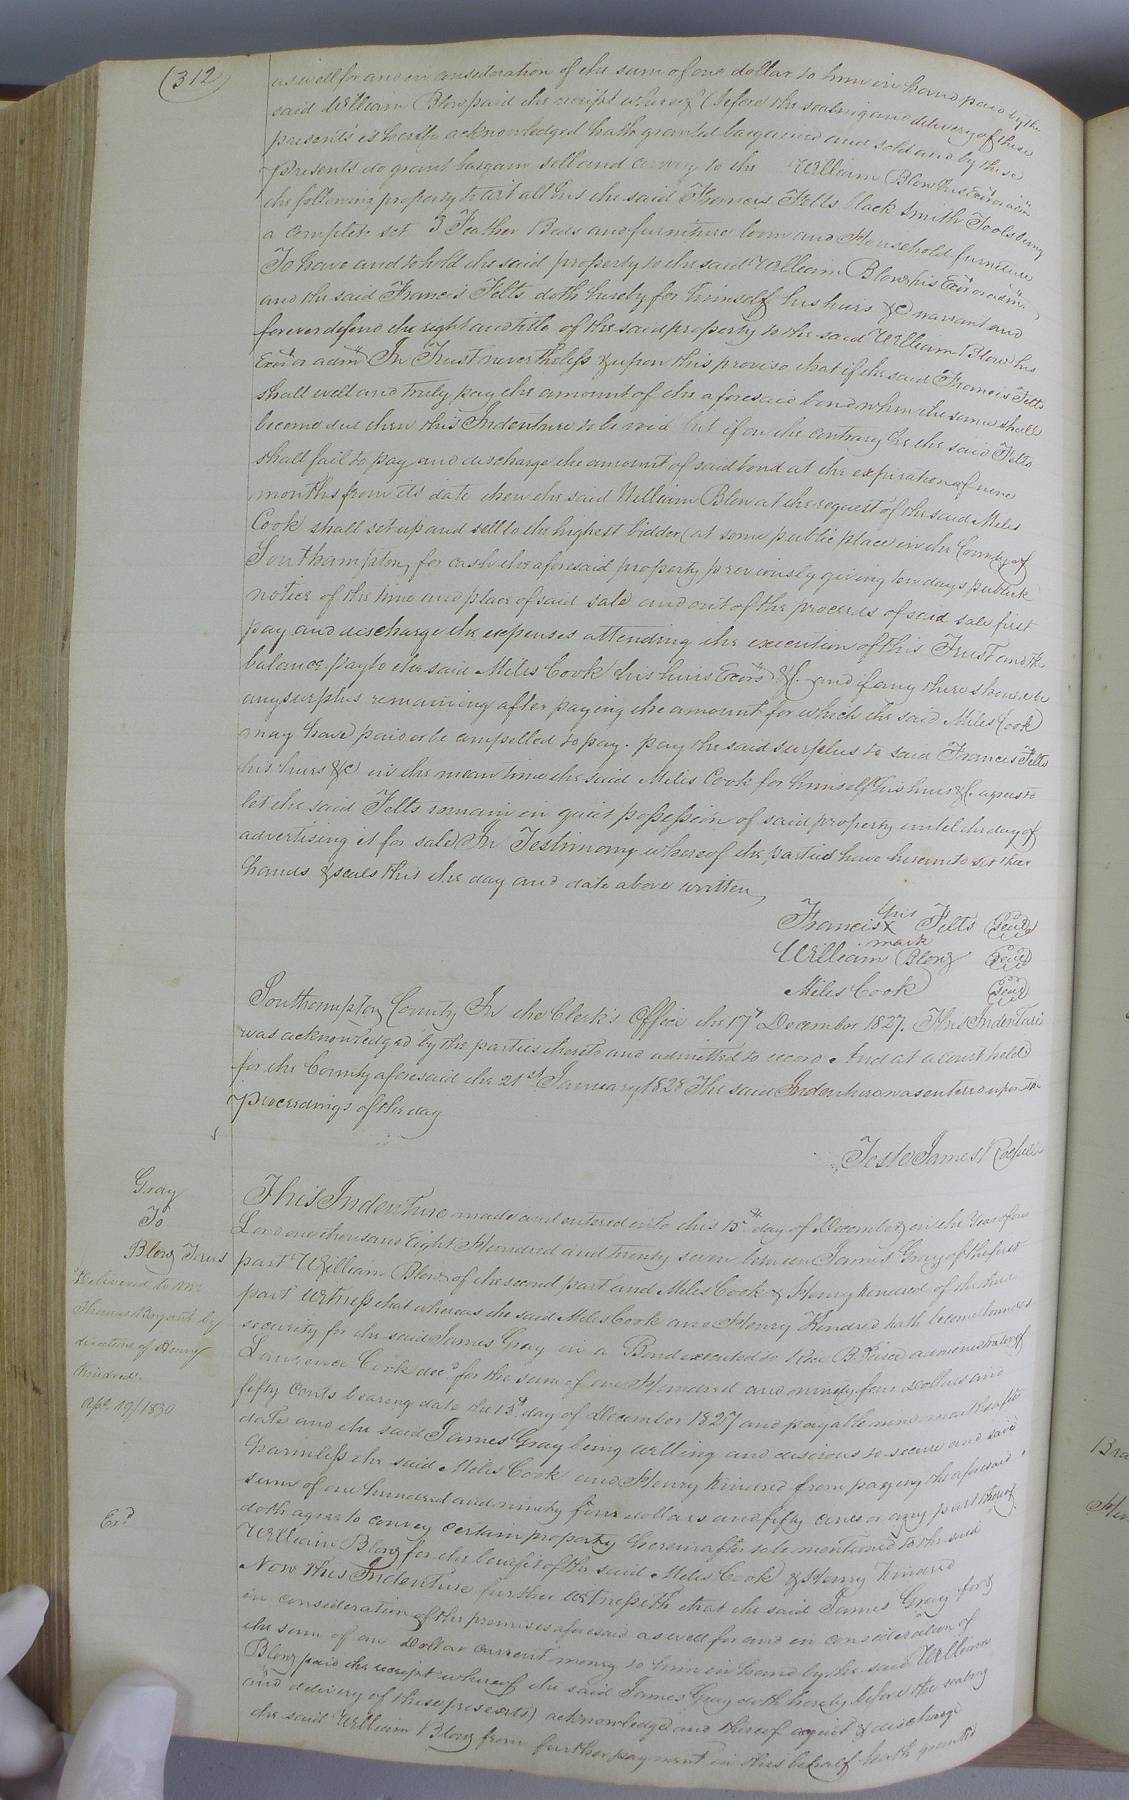 (312)
as well for and in consideration of the sum of one dollar to him in hand paid by the
said William Blow paid the receipt whereof (before the sealing and delivery of these
presents is hereby acknowledged hath granted bargained and sold and by these
Presents do grant bargain sell and convey to the William Blow his Exor or adm
the following property to wit all his the said Francis Felts black Smith Tools being
a complete set 3 Feather Beds and furniture loom and Household furniture
To have and to hold the said property to the said William Blow his Exor or adm
and the said Francis Felts doth hereby for himself his heirs &c warrant and
forever defend the right and title of the said property to the said William Blow his
Exor or adm In Trust nevertheless & upon this proviso that if the said Francis Felts
shall well and truly pay the amount of the aforesaid bond when the same shall
become due then this Indenture to be void but if on the contrary he the said Felts
shall fail to pay and discharge the amount of said bond at the expiration of nine
months from its date then the said William Blow at the request of the said Miles
Cook shall set up and sell to the highest bidder (at some public place in the County of
Southampton) for cash the aforesaid property previously giving ten days publick
notice of the time and place of said sale and out of the proceeds of said sale first
pay and discharge the expenses attending the execution of this Trust and the
balance pay to the said Miles Cook his heirs Exors &c. and if any there should be
any surplus remaining after paying the amount for which the said Miles Cook
may have paid or be compelled to pay. pay the said surplus to said Francis Felts
his heirs &c in the mean time the said Miles Cook for himself his heirs &c. agrees to
let the said Felts remain in quiet possession of said property until the day of
advertising it for sale In Testimony whereof the parties have hereunto set their
hands & seals this the day and date above written
his
Francis x Felts seal
mark
William Blow seal
Miles Cook seal
Southampton County In the Clerk's Office the 17th December 1827. This Indenture
was acknowledged by the parties thereto and admitted to record. And at a court held
for the County aforesaid the 21st January 1828 The said Indenture was entered upon the
proceedings of the day
Teste James Rochelle
Gray
To
Blow Trus
Delivered to
Thomas Bryant by
directions of Henry
Kindred
Apl. 19/1830
Exd
This Indenture made and entered into this 15th day of December in the Year of our
Lord one thousand Eight Hundred and twenty seven between James Gray of the first
part William Blow of the second part and Miles Cook & Henry Kindred of the third
part Witness that whereas the said Miles Cook and Henry Kindred hath become bound as
security for the said James Gray in a Bond executed to Rice B. Pierce administrator of
Lawrence Cook decd for the sum of one Hundred and ninety four Dollars and
fifty Cents bearing date the 15th day of December 1827 and payable nine months after
date and the said James Gray being willing and desirous to secure and save
harmless the said Miles Cook and Henry Kindred from paying the aforesaid
sum of one hundred and ninety four dollars and fifty cents or any part thereof
doth agree to convey certain property hereinafter to be mentioned to the said
William Blow for the benefit of the said Miles Cook & Henry Kindred
Now this Indenture further Witnesseth that the said James Gray for &
in consideration of the premises aforesaid as well for and in consideration of
the sum of one Dollar current money to him in hand by the said William
Blow paid the receipt whereof the said James Gray doth hereby before the sealing
and delivery of these presents) acknowledge and thereof acquit & discharge
the said William Blow from further payment in this behalf hath granted